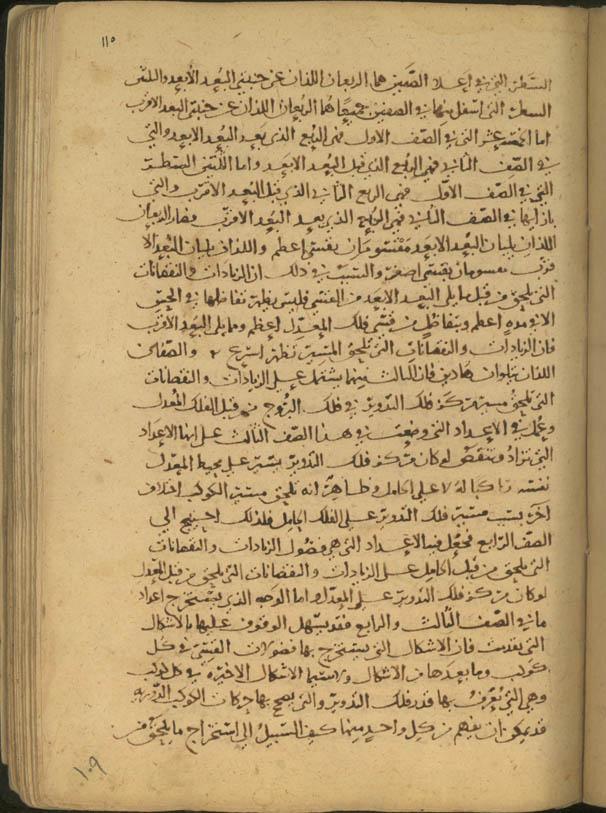 ١١٥
السطر التي في اعلا الصفين هما الربعان اللذان عن جنبتي البعد الابعد والثلثى
السطر التي اسفل منها في الصفين جميعا هما الربعان اللذان عن جنبتي البعد الاقرب
اما الخمسة عشر التي في الصف الاول فهي الربع الذي بعد البعد الابعد والتي
في الصف الثاني فهي الربع الذي قبل البعد الابعد واما الثلثى السطر
التي في الصف الاول فهي الربع الثاني الذي قبل البعد الاقرب والتي
بازائها في الصف الثاني فهي الربع الذي بعد البعد الاقرب وصار الربعان
اللذان يليان البعد الابعد مقسومان بقسي اعظم واللذان يليان البعد الا
قرب مقسومان بقسي اصغر والسبب في ذلك ان الزيادات والنقصانات
التي تلحق من قبل ما يلي البعد الابعد من القسي فليس يظهر تفاضلها في الحس
الا بمدة اعظم وبتفاضل من قسي فلك المعدل اعظم ومما يلي البعد الاقرب
فان الزيادات والنقصانات التي تلحق المسير تظهر اسرع والصفان
اللذان يتلوان هاذين فان الثالث منهما يشتمل على الزيادات والنقصانات
التي تلحق مسير مركز فلك التدوير في فلك البروج من قبل الفلك المعدل
وعمل في الاعداد التي وضعت في هذا الصف الثالث على انها الاعداد
التي تزاد وتنقص لو كان مركز فلك التدوير يسير على محيط المعدل
نفسه لا على الحامل وظاهر انه تلحق مسير الكوكب اختلاف
اخر بسبب مسير فلك التدوير على الفلك الحامل فلذلك احتيج الى
الصف الرابع فجعل فيه الاعداد التي هي فضول الزيادات والنقصانات
التي تلحق من قبل الحامل على الزيادات والنقصانات التي تلحق من قبل المعدل
لو كان مركز فلك التدوير على المعدل واما الوجه الذي يستخرج اعداد
ما في الصف الثالث والرابع فقد يسهل الوقوف عليها بالاشكال
التي تقدمت فان الاشكال التي يستخرج بها القسي في كل
كوكب وما بعدها من الاشكال ولا سيما الاشكال الاخيرة في كل كوكب
وهي التي يعرف بها قدر فلك التدوير والتي يصحح بها حركات الكوكب الدورية
قد يمكن ان يفهم من كل واحد منها كيف السبيل الى استخراج ما يلحق من
١٠٩